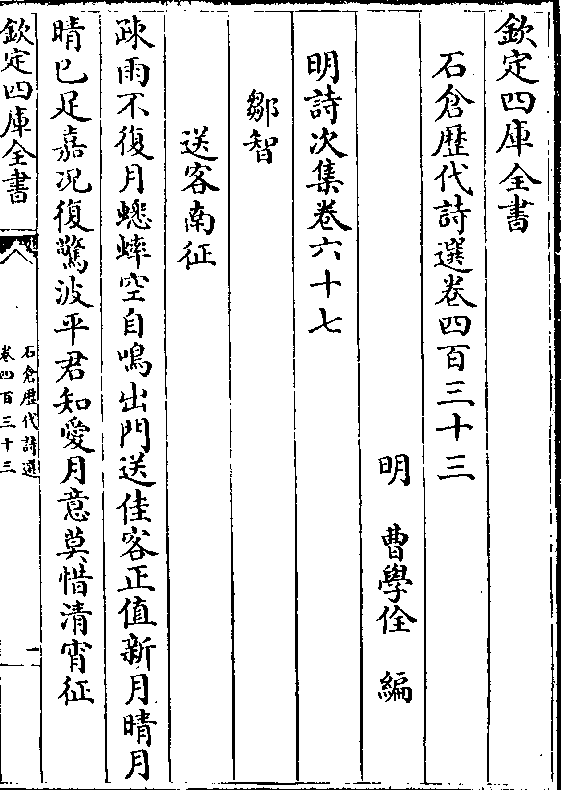 欽定四庫全書
石倉歷代詩選卷四百三十三
明　曹學佺　編
明詩次集卷六十七
鄒智
送客南征
疎雨不復月蟋蟀空自鳴出門送佳客正值新月晴月
晴已足嘉况復驚波平君知愛月意莫惜清宵征
欽定四庫全書
石倉歷代詩選
卷四百三十三
一